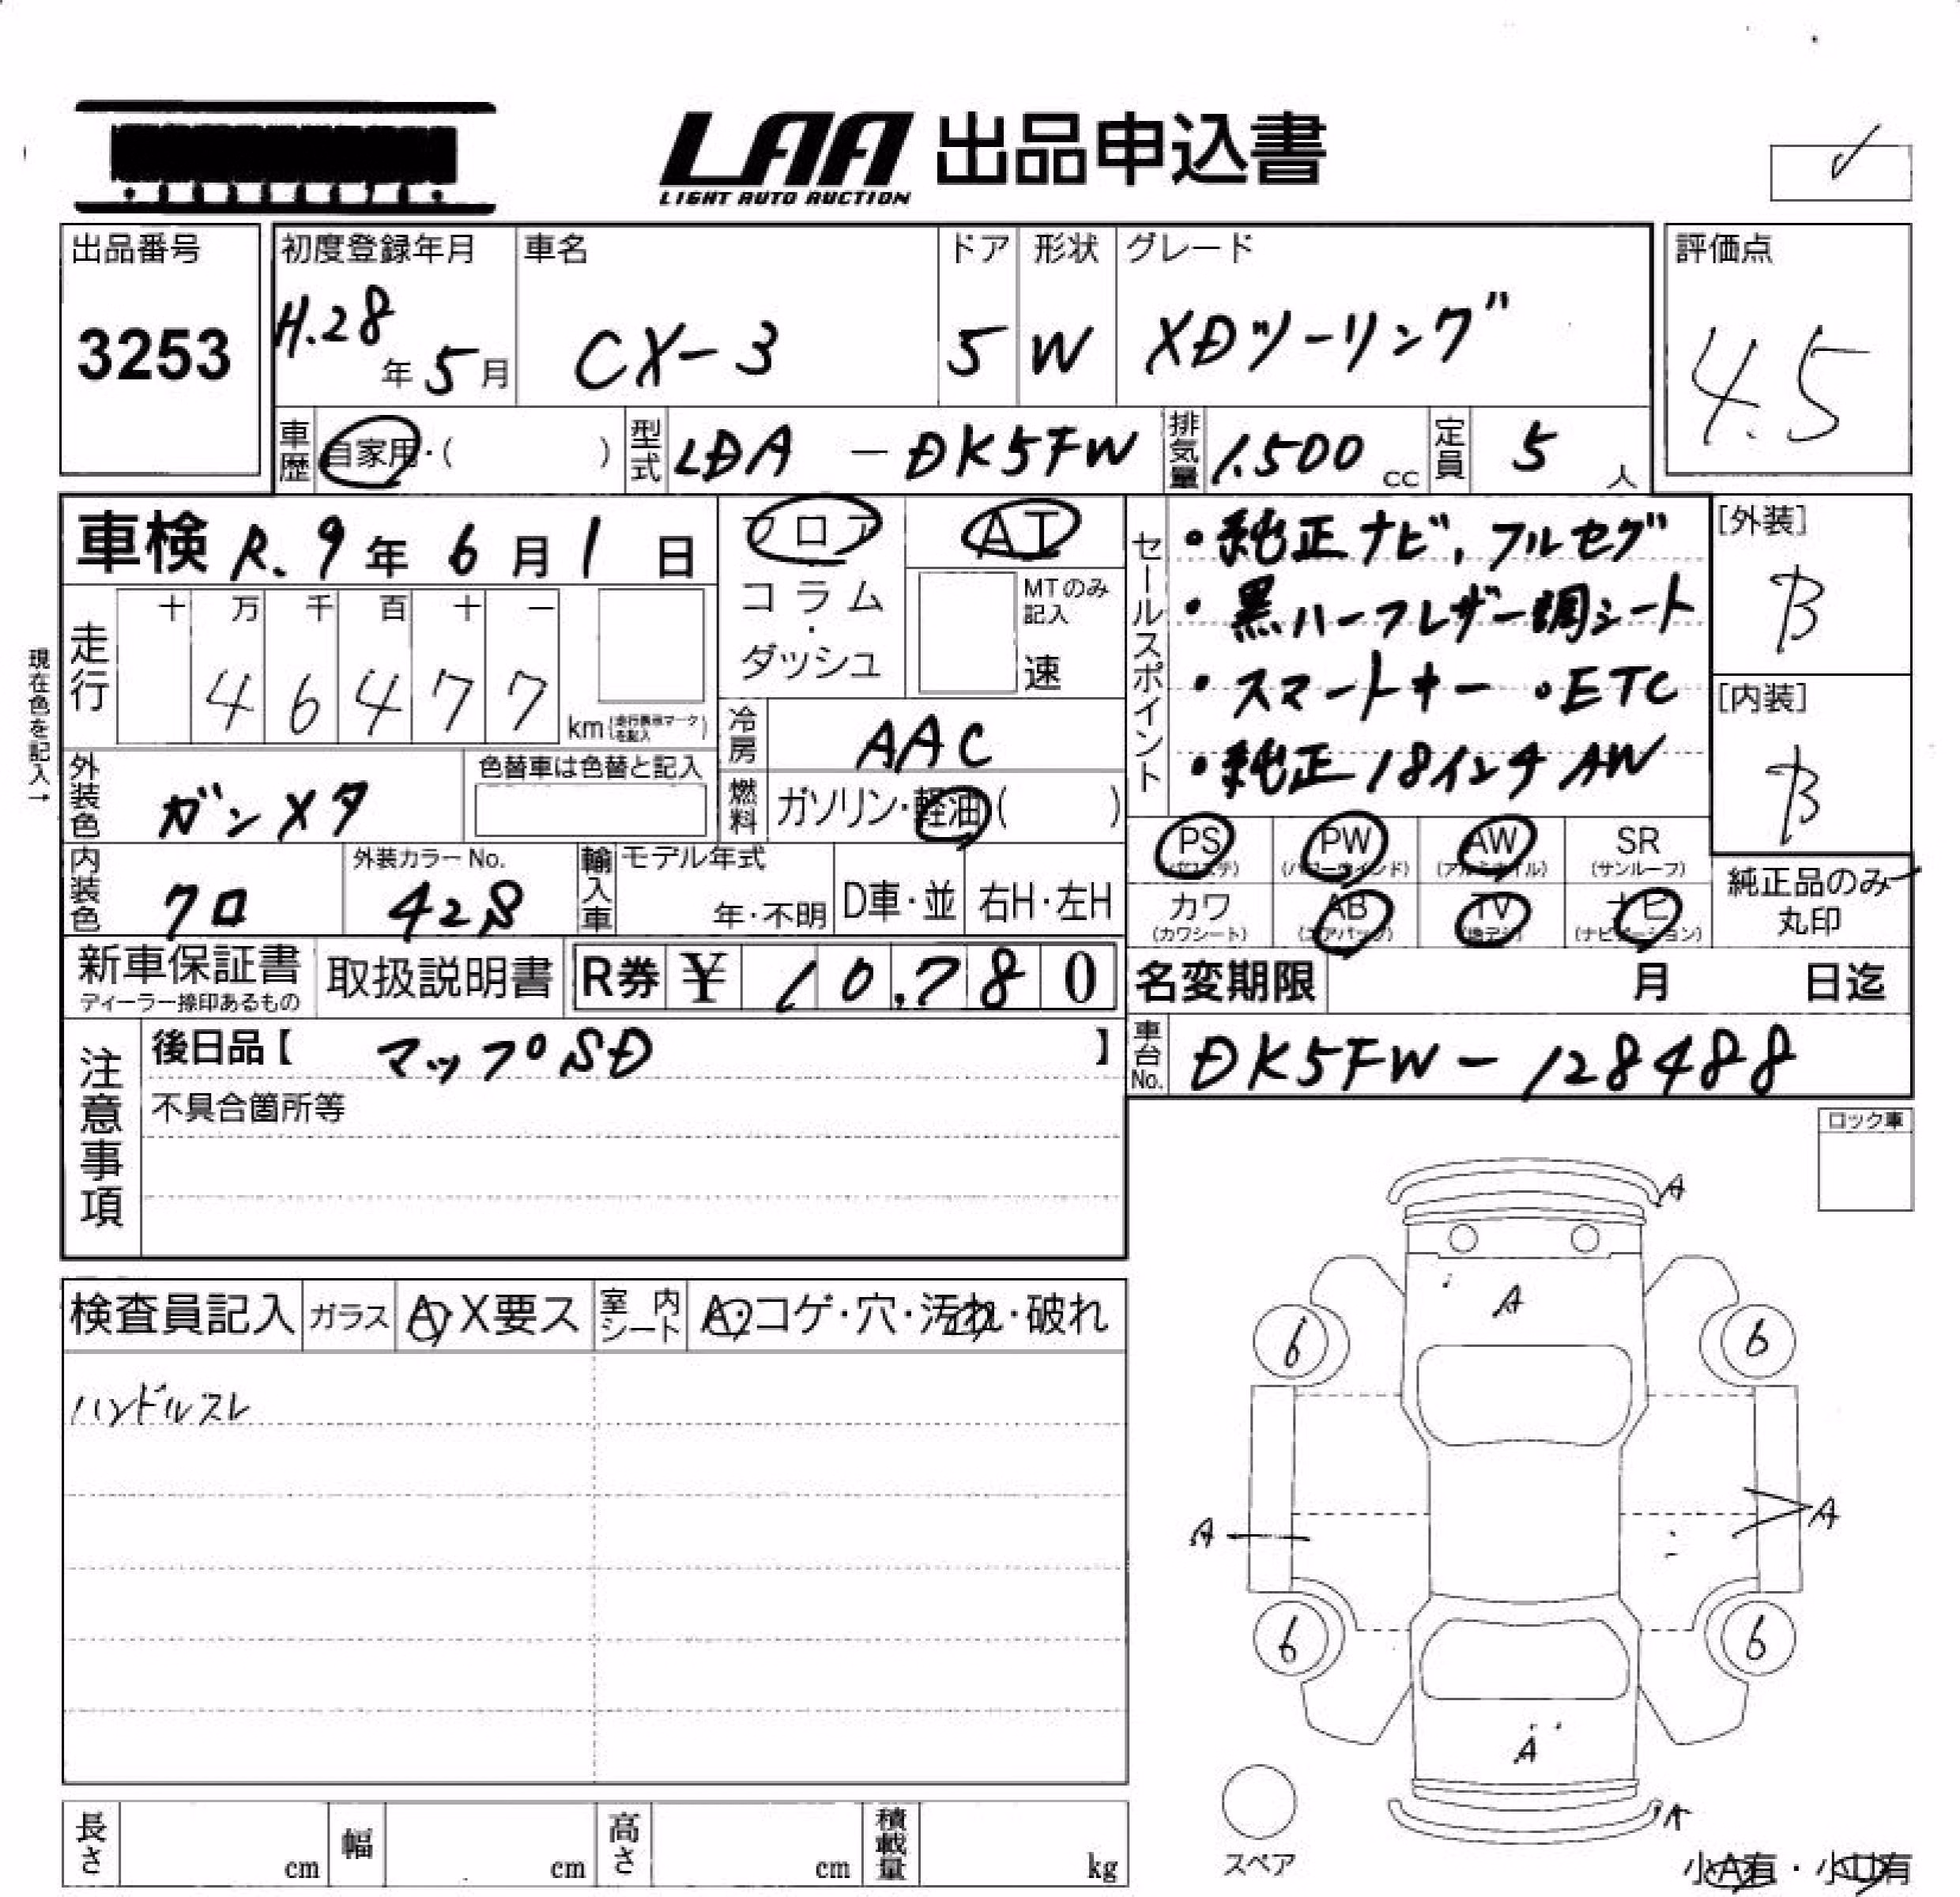 LAA 出品申込書
LIGHT AUTO AUCTION
出品番号 初度登録年月 車名 ドア 形状 グレード 評価点
3253 H.28年5月 CX-3 5 W XDツーリング 4.5
車歴 自家用・( ) 型式 LDA - DK5FW 排気量 1.500 cc 定員 5 人
車検 R.9年6月1日 フロア AT セールスポイント ・純正ナビ、フルセグ [外装]
コラム・ダッシュ MTのみ記入 速 ・黒ハーフレザー調シート B
現在色を記入→
走行 十 万 千 百 十 一
4 6 4 7 7 km (走行表示マークを記入) ・スマートキー ・ETC [内装]
冷房 AAC ・純正18インチAW B
外装色 ガンメタ 色替車は色替と記入 燃料 ガソリン・軽油( )
PS (パワステ) PW (パワーウインド) AW (アルミホイル) SR (サンルーフ)
内装色 クロ 外装カラーNo. 42S 輸入車 モデル年式 年・不明 D車・並 右H・左H
カワ (カワシート) AB (エアバッグ) TV ナビ (ナビゲーション) 純正品のみ丸印
新車保証書 ディーラー捺印あるもの 取扱説明書 R券 ¥ 10.780 名変期限 月 日迄
注意事項 後日品【 マップSD 】 車台No. DK5FW-128488
不具合箇所等
ロック車
検査員記入 ガラス A・X要ス 室内シート A・コゲ・穴・汚れ・破れ
ハンドルスレ
A
A
6 6
A A
6 6
A
A
スペア
長さ cm 幅 cm 高さ cm 積載量 kg
小A有・小U有